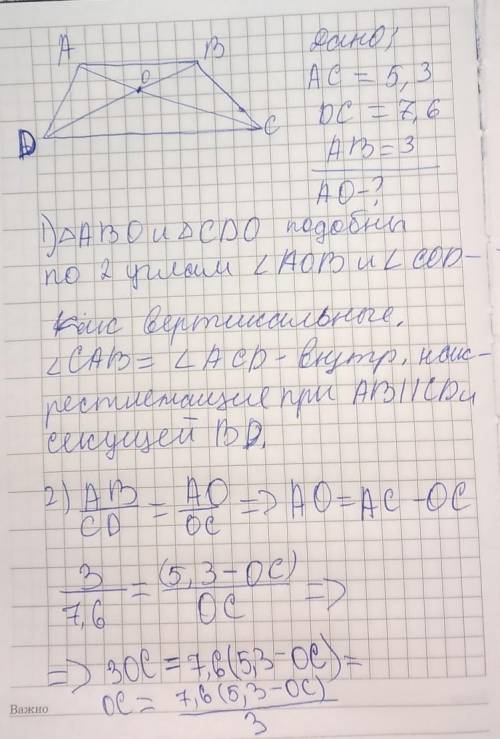 A B
O
D C
Дано:
AC = 5,3
DC = 7,6
AB = 3
AO - ?
1) △ABO и △CDO подобны
по 2 углам ∠AOB и ∠COD -
как вертикальные.
∠CAB = ∠ACD - внутр. нак-
рестлежащие при AB||CD и
секущей BD.
2) AB/CD = AO/OC => AO = AC - OC
3/7,6 = (5,3 - OC)/OC =>
=> 3OC = 7,6(5,3 - OC) =
OC = 7,6(5,3 - OC)/3
Важно